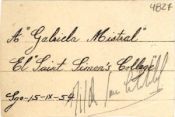 4827
A "Gabriela Mistral"
El Saint Simon's College
Sgo-15-IX-54